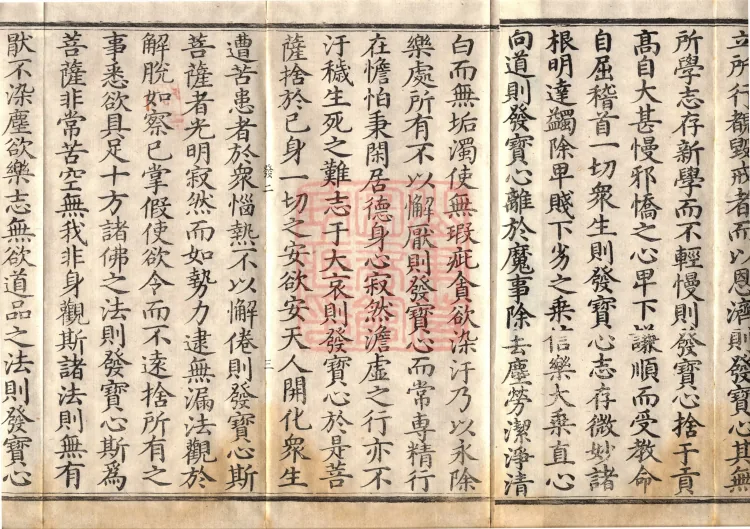 立所行都毀戒者而以恩濟則發寶心其無
所學志存新學而不輕慢則發寶心捨于貢
高自大甚慢邪憍之心卑下謙順而受教命
自屈稽首一切衆生則發寶心志存微妙諸
根明達蠲除卑賤下劣之乘信樂大乘直心
向道則發寶心離於魔事除去塵勞潔淨清
白而無垢濁使無瑕疵貪欲染汙乃以永除
樂處所有不以懈厭則發寶心而常專精行
在憺怕秉閑居德身心寂然澹虛之行亦不
汙穢生死之難志于大哀則發寶心於是菩
薩捨於己身一切之安欲安天人開化衆生
發二 三
遭苦患者於衆惱熱不以懈倦則發寶心斯
菩薩者光明寂然而如勢力逮無漏法觀於
解脫如察已掌假使欲令而不遠捨所有之
事悉欲具足十方諸佛之法則發寶心斯爲
菩薩非常苦空無我非身觀斯諸法則無有
猒不染塵欲樂志無欲道品之法則發寶心